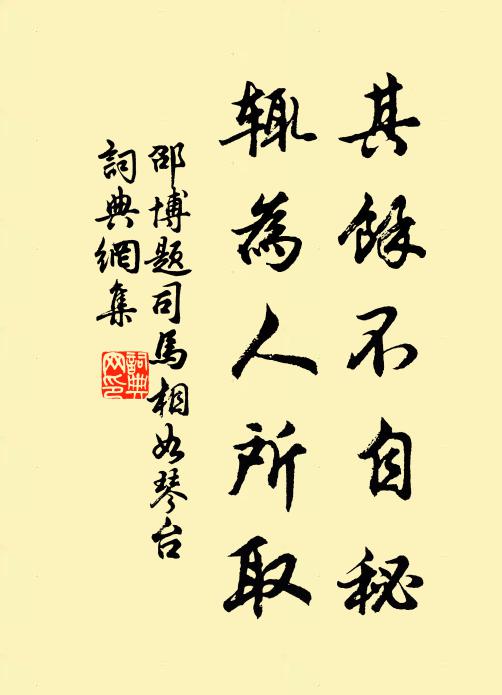 其餘不自秘
輒為人所取
邵博題司馬相如琴台
詞典網集
詞典网印